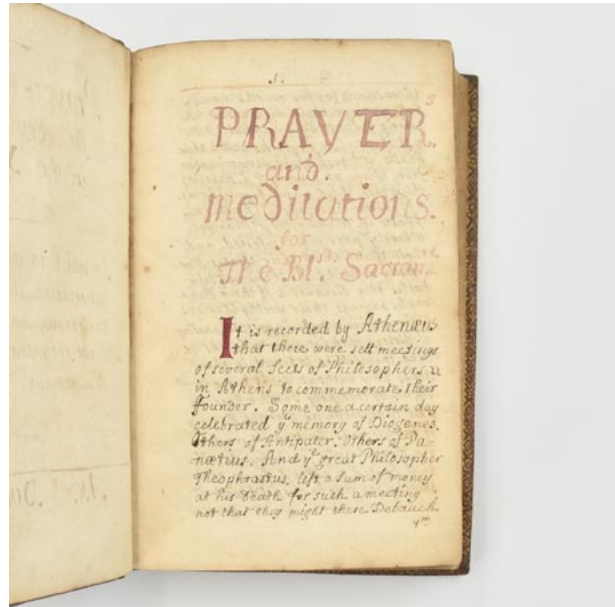 1.
PRAYERS
and
meditations.
for
The Bl.sd Sacram
It is recorded by Athenæus
that there were sett meetings
of several Sects of Philosophers
in Athens to commemorate their
ffounder. Some one a certain day
celebrated ye memory of Diogenes.
Others of Antipater, Others of Pa=
nætius. And ye great Philosopher
Theophrastus, left a Sum of money
at his Death for such a meeting
not that they might there Debauch
ym